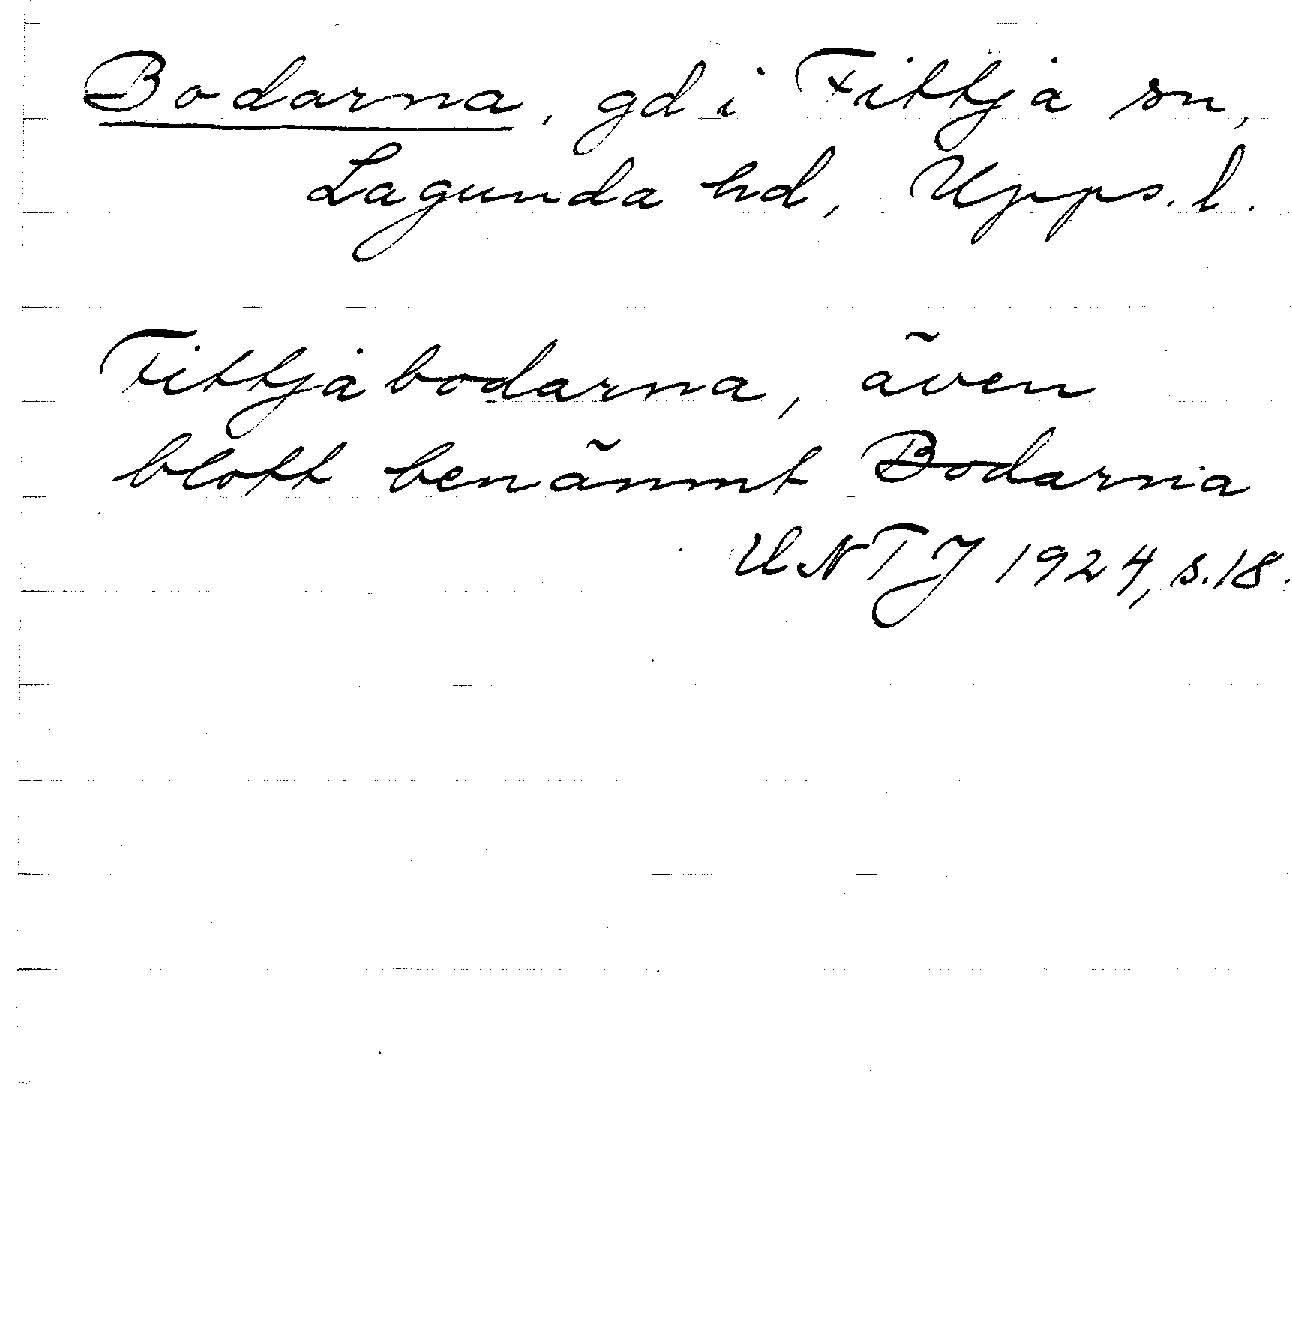 Bodarna, gd i Fittja sn,
Lagunda hd, Upps. l.
Fittjabodarna, även
blott benämnt Bodarna
UNTJ 1924, s. 18.